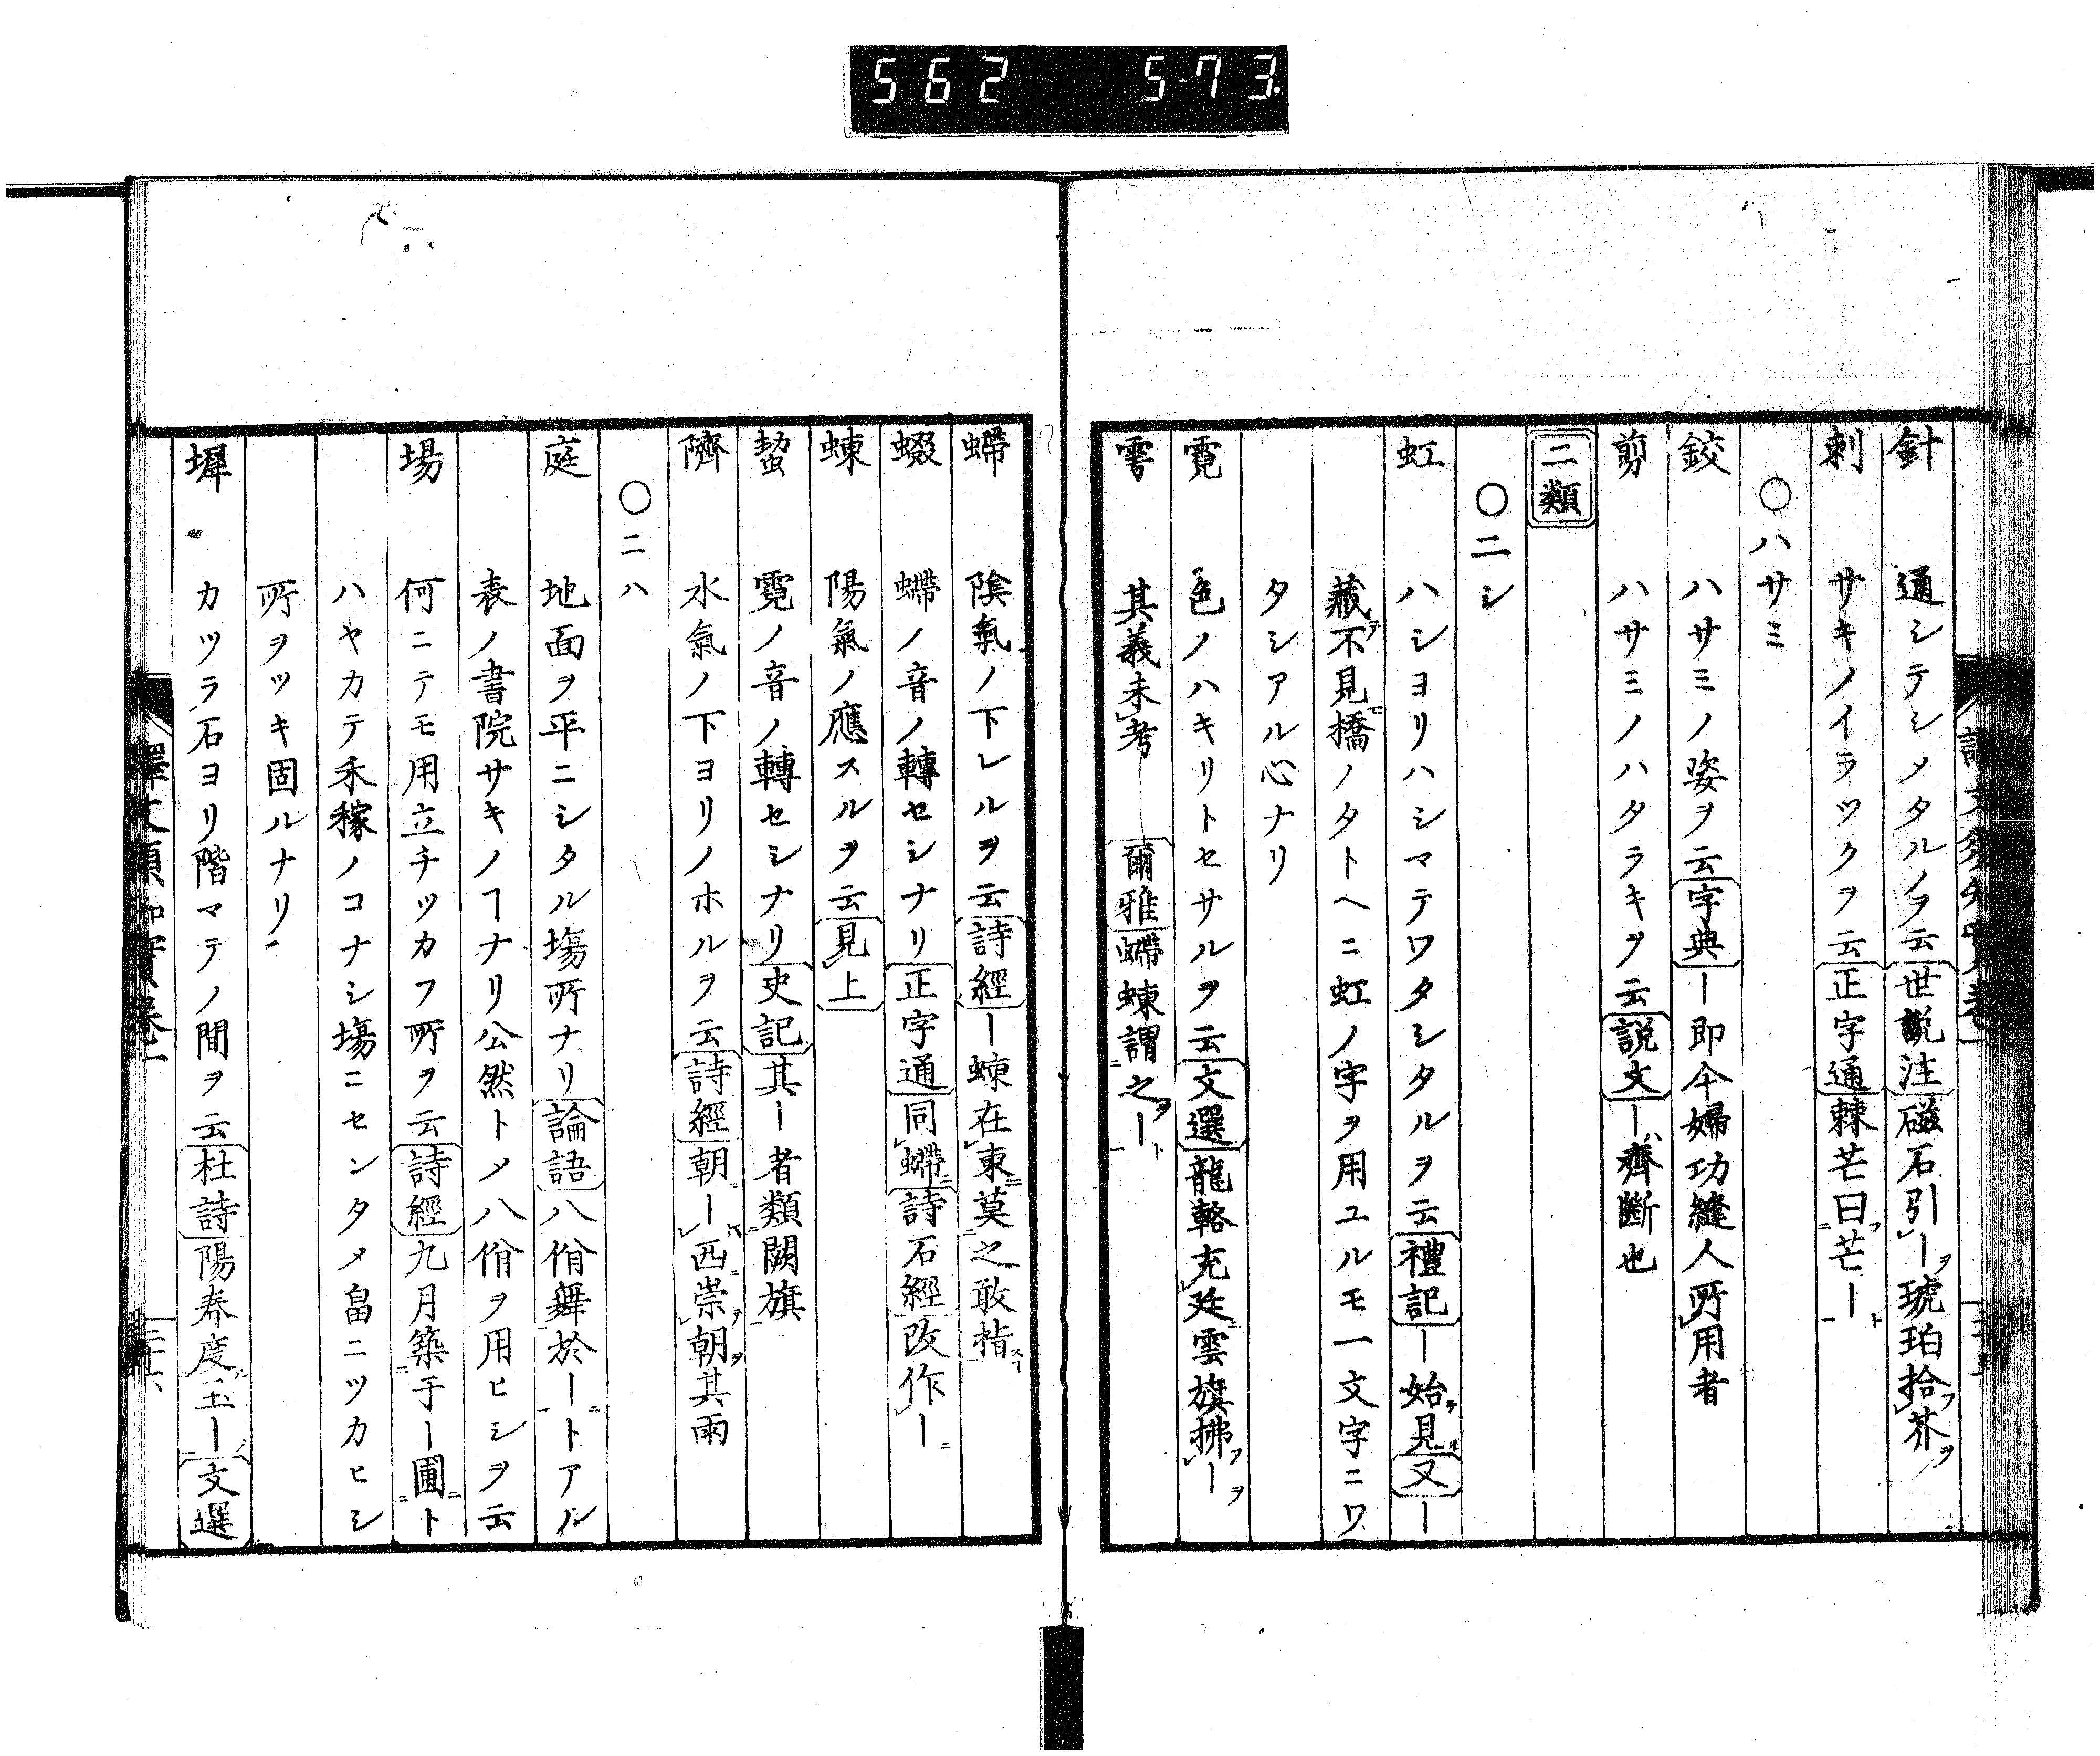 562 573
針 通シテシメタルノヲ云世説注磁石引ーヲ琥珀拾フ芥ヲ
刺 サキノイラツクヲ云正字通棘芒曰フ芒ート
〇ハサミ
鉸 ハサミノ姿ヲ云字典ー即今婦功縫人所用者
剪 ハサミノハタラキヲ云説文ー齊断也
二類
〇ニシ
虹 ハシヨリハシマテワタシタルヲ云禮記ー始テ見又ー
藏テ不見橋ノタトヘニ虹ノ字ヲ用ユルモ一文字ニワ
タシアル心ナリ
霓 色ノハキリトセサルヲ云文選龍輅充廷雲旗拂フーヲ
雩 其義未考 爾雅螮蝀謂之ヲート
螮 陰氣ノ下レルヲ云詩經ー蝀在東莫之敢指
蝃 螮ノ音ノ轉セシナリ正字通同螮詩石經改作ー
蝀 陽氣ノ應スルヲ云見上
蝥 霓ノ音ノ轉セシナリ史記其ー者類闕旗
隮 水氣ノ下ヨリノホルヲ云詩經朝ー西崇朝其雨
〇ニハ
庭 地面ヲ平ニシタル塲所ナリ論語八佾舞於ートアル
表ノ書院サキノヿナリ公然トメ八佾ヲ用ヒシヲ云
場 何ニテモ用立チツカフ所ヲ云詩經九月築于ー圃ト
ハヤカテ禾稼ノコナシ塲ニセンタメ畠ニツカヒシ
所ヲツキ固ルナリ
墀 カツラ石ヨリ階マテノ間ヲ云杜詩陽春度玉ー文選